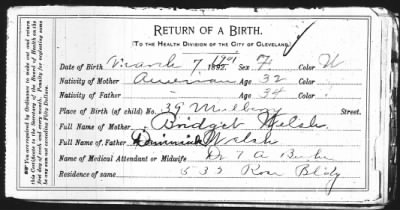 You are required by Ordinance to make out and return
this Certificate to the Secretary of the Board of Health on the
first day of each and every month. Penalty for neglecting same
RETURN OF A BIRTH.
(TO THE HEALTH DIVISION OF THE CITY OF CLEVELAND.)
Date of Birth March 7 1901 189 Sex F Color W
Nativity of Mother American Age 32 Color
Nativity of Father " Age 34 Color
Place of Birth (of child) No. 39 Mulberry Street.
Full Name of Mother Bridget Welsh
Full Name of Father Dominick Welsh
Name of Medical Attendant or Midwife Dr T A Burke
Residence of same 532 Rose Bldg